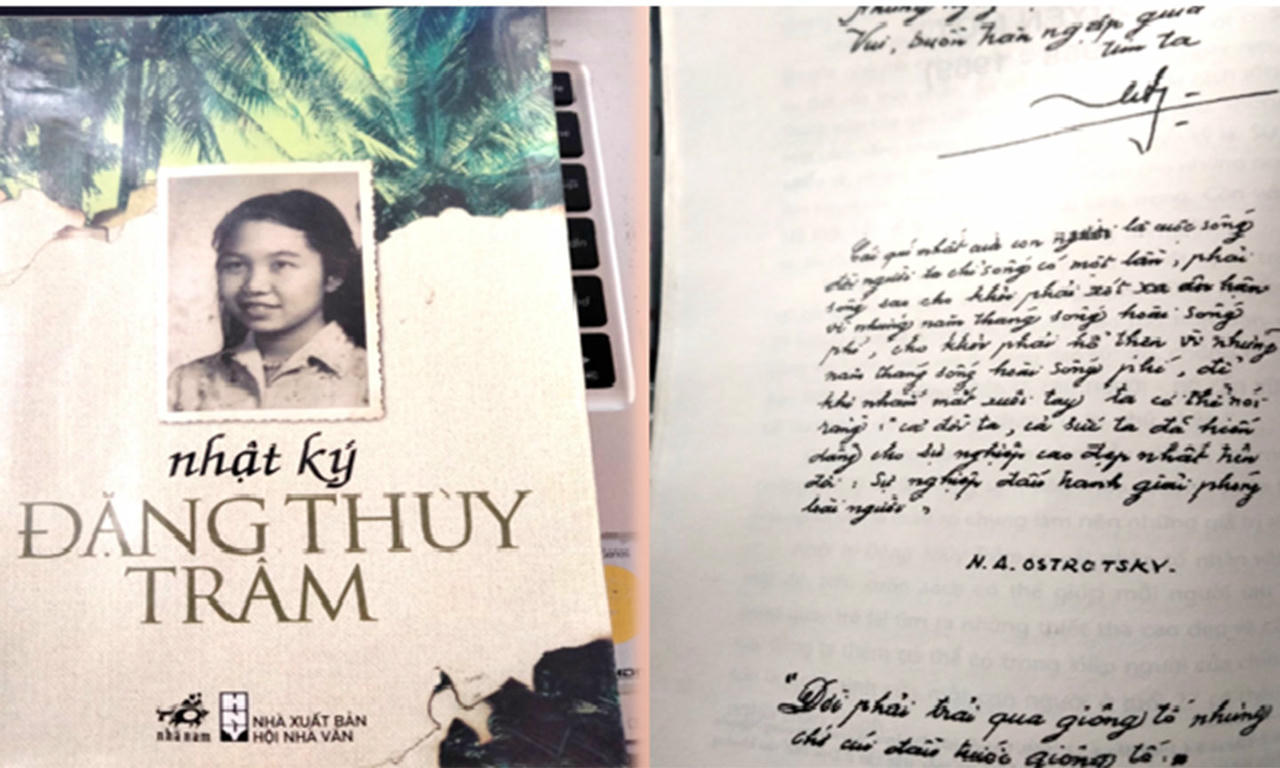 nhật ký
ĐẶNG THÙY
TRÂM
nhã nam
HNV
NHÀ XUẤT BẢN
HỘI NHÀ VĂN
Vui, buồn tràn ngập qua
tim ta
Cái quí nhất của con người là cuộc sống
đời người ta chỉ sống có một lần, phải
sống sao cho khỏi phải xót xa ân hận
vì những năm tháng sống hoài sống
phí, cho khỏi phải hổ thẹn vì những
năm tháng sống hoài sống phí, để
khi nhắm mắt xuôi tay ta có thể nói
rằng: cả đời ta, cả sức ta đã hiến
dâng cho sự nghiệp cao đẹp nhất trên
đời: Sự nghiệp đấu tranh giải phóng
loài người"
N.A. OSTROTSKY.
"Đời phải trải qua giông tố nhưng
chớ cúi đầu trước giông tố."